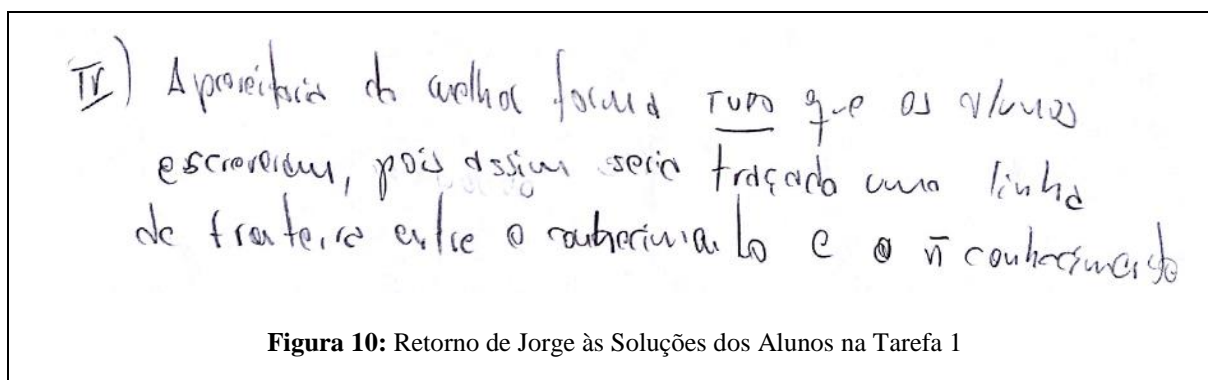 IV) Aproveitaria da melhor forma TUDO que os alunos
escreveram, pois assim seria traçado uma linha
de fronteira entre o conhecimento e o ñ conhecimento
Figura 10: Retorno de Jorge às Soluções dos Alunos na Tarefa 1